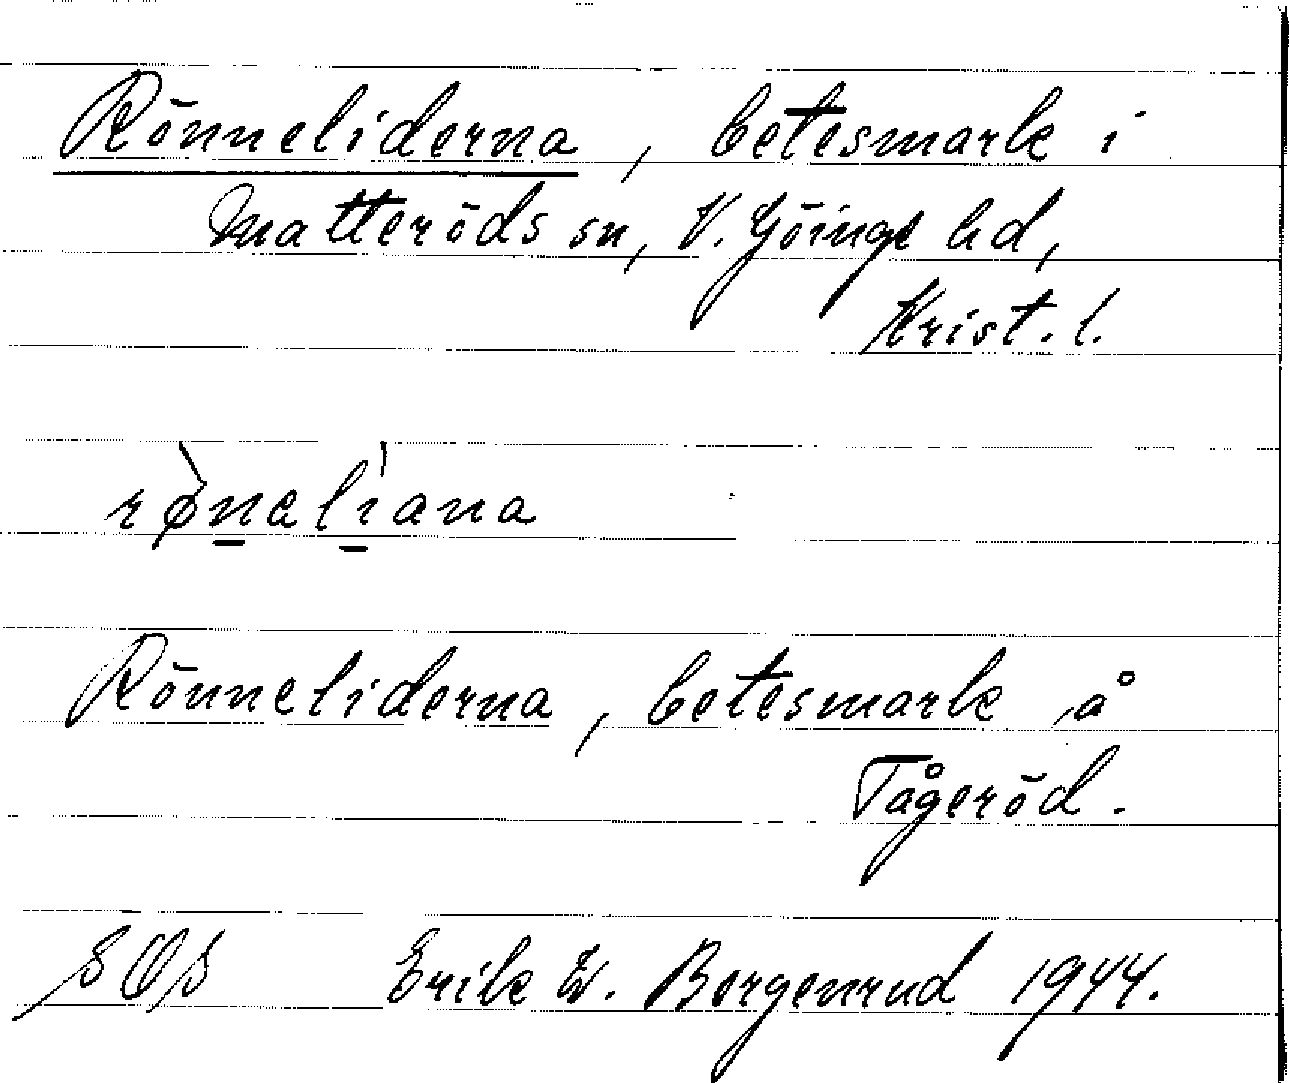 Rönneliderna, betesmark i
Matteröds sn, V. Göinge hd,
Krist. l.
rø̀nəlìana
Rönneliderna, betesmark å
Tågeröd.
SOS Erik W. Bergenrud 1944.